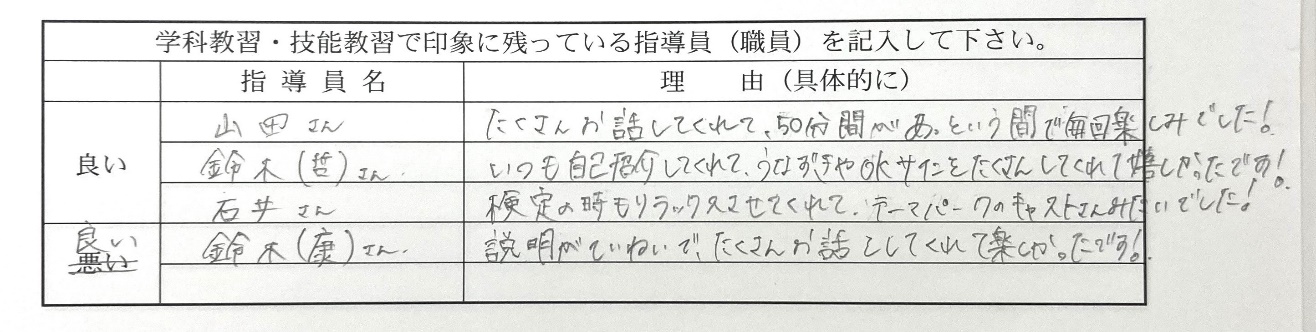 学科教習・技能教習で印象に残っている指導員（職員）を記入して下さい。
指 導 員 名 理 由（具体的に）
山田さん たくさんお話してくれて、50分間があっという間で毎回楽しみでした！
良い 鈴木（哲）さん いつも自己紹介してくれて、うなずきやOKサインをたくさんしてくれて嬉しかったです！
石井さん 検定の時もリラックスさせてくれて、テーマパークのキャストさんみたいでした！
良い 鈴木（康）さん 説明がていねいで、たくさんお話ししてくれて楽しかったです！
悪い